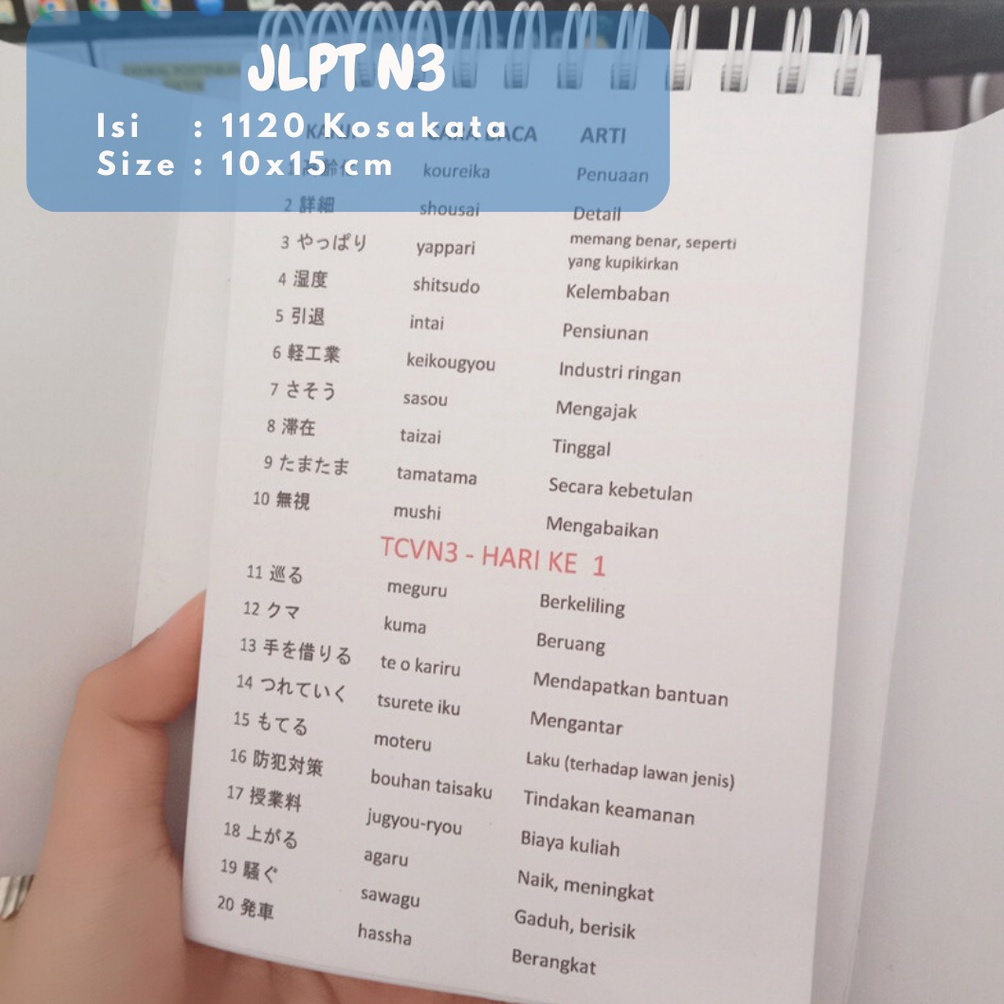 JLPT N3
Isi : 1120 Kosakata
Size : 10x15 cm
CARA BACA ARTI
koureika Penuaan
2 詳細 shousai Detail
3 やっぱり yappari memang benar, seperti
yang kupikirkan
4 湿度 shitsudo Kelembaban
5 引退 intai Pensiunan
6 軽工業 keikougyou Industri ringan
7 さそう sasou Mengajak
8 滞在 taizai Tinggal
9 たまたま tamatama Secara kebetulan
10 無視 mushi Mengabaikan
TCVN3 - HARI KE 1
11 巡る meguru Berkeliling
12 クマ kuma Beruang
13 手を借りる te o kariru Mendapatkan bantuan
14 つれていく tsurete iku Mengantar
15 もてる moteru Laku (terhadap lawan jenis)
16 防犯対策 bouhan taisaku Tindakan keamanan
17 授業料 jugyou-ryou Biaya kuliah
18 上がる agaru Naik, meningkat
19 騒ぐ sawagu Gaduh, berisik
20 発車 hassha Berangkat